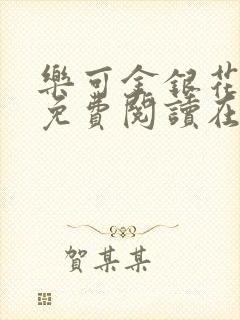 樂可金銀花
免費閱讀在
賀某某